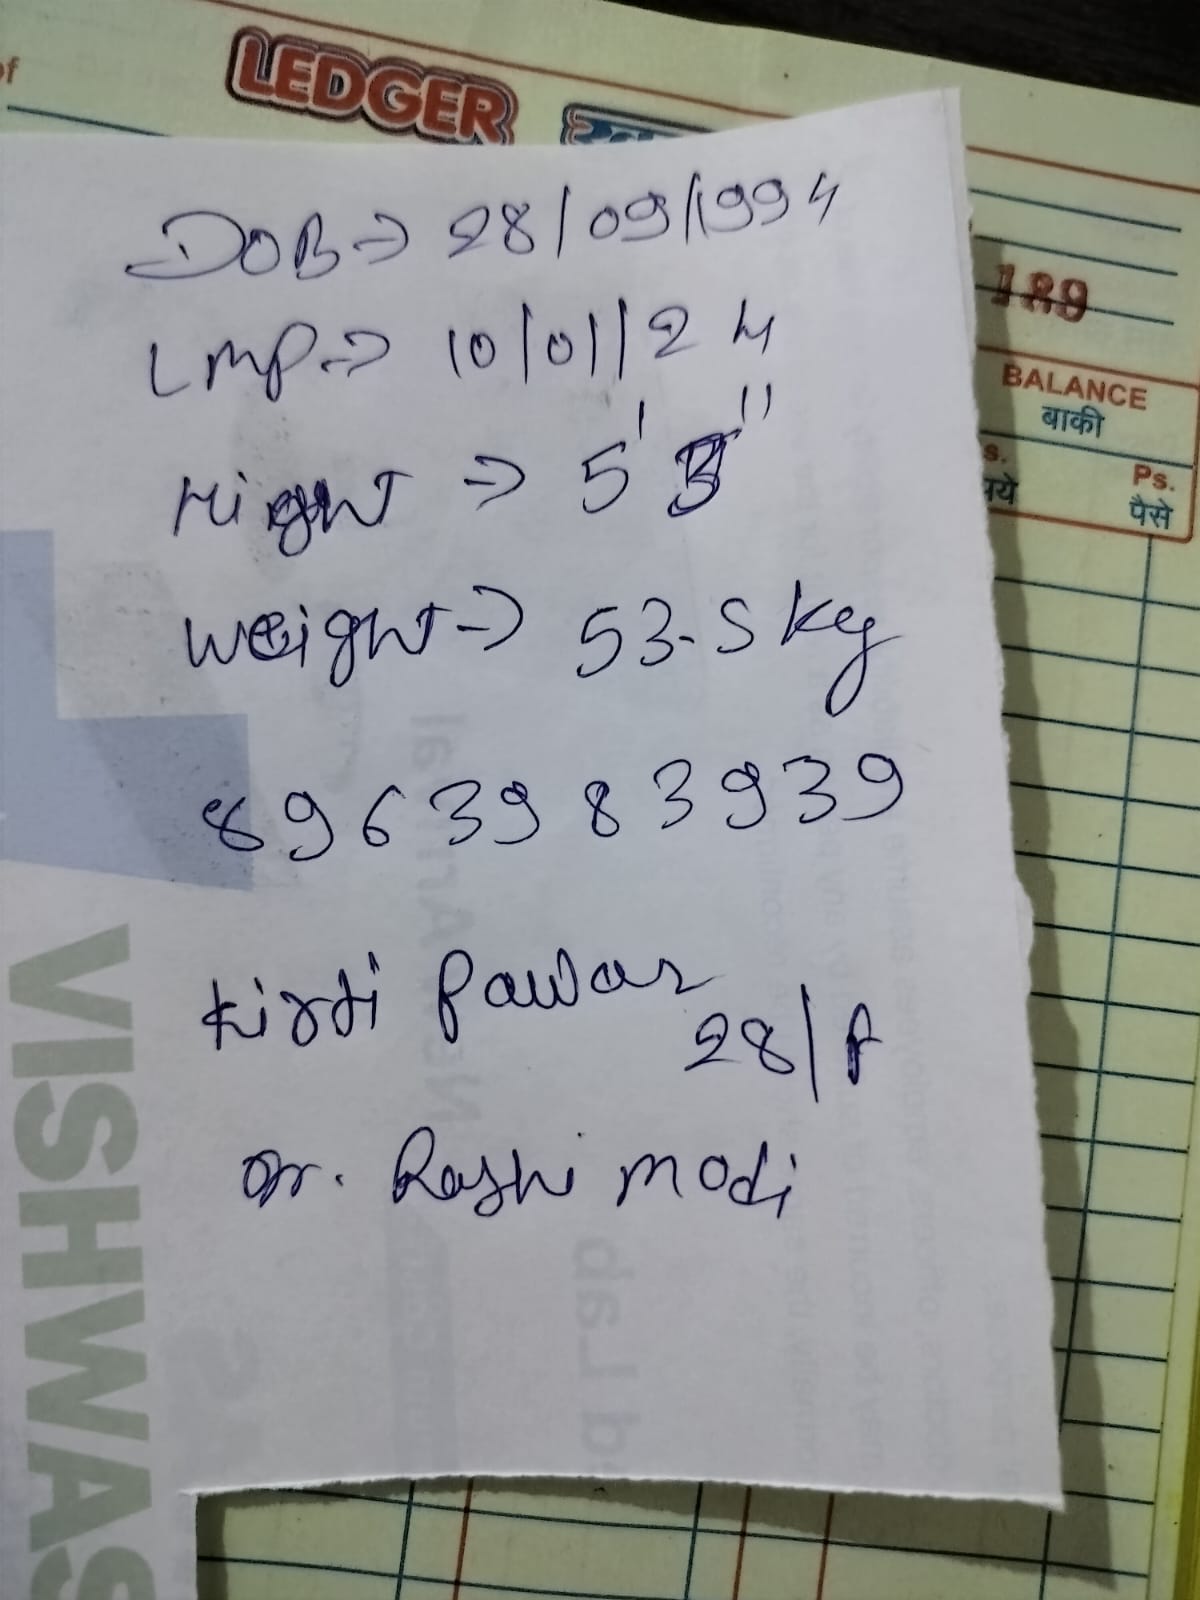 of
LEDGER
DOB → 28/09/1994
189
LMP → 10/01/24
BALANCE
बाकी
Hight → 5' 3"
s. Ps.
पये पैसे
Weight → 53.5 kg
8963983939
Kirti Pawar
28/F
Dr. Rashi Modi
VISHWAS